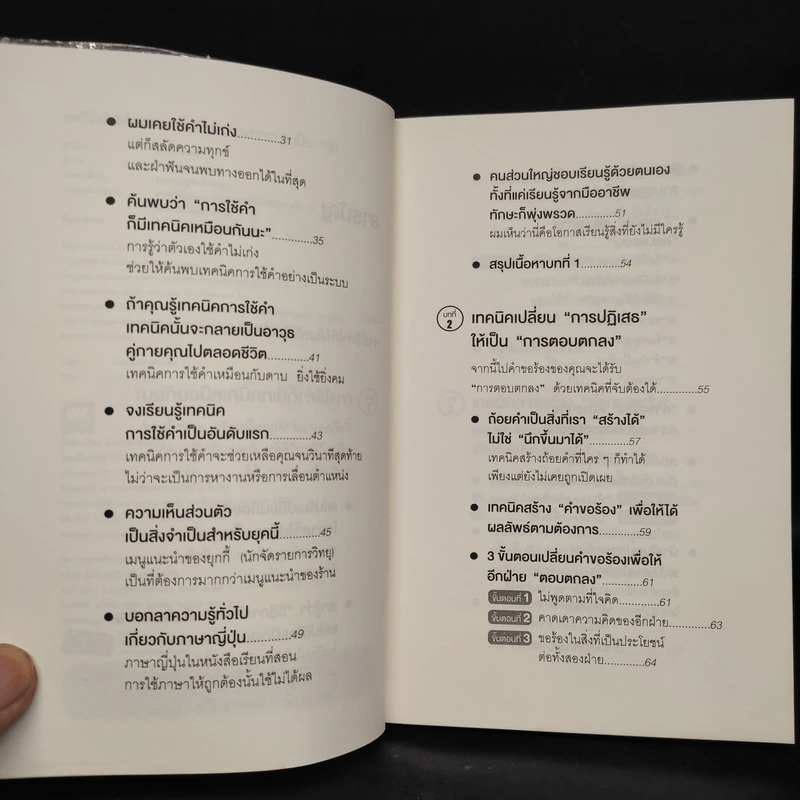 ● ผมเคยใช้คำไม่เก่ง............31
แต่ก็สลัดความทุกข์
และฝ่าฟันจนพบทางออกได้ในที่สุด
● ค้นพบว่า “การใช้คำ
ก็มีเทคนิคเหมือนกันนะ”............35
การรู้ว่าตัวเองใช้คำไม่เก่ง
ช่วยให้ค้นพบเทคนิคการใช้คำอย่างเป็นระบบ
● ถ้าคุณรู้เทคนิคการใช้คำ
เทคนิคนั้นจะกลายเป็นอาวุธ
คู่กายคุณไปตลอดชีวิต............41
เทคนิคการใช้คำเหมือนกับดาบ ยิ่งใช้ยิ่งคม
● จงเรียนรู้เทคนิค
การใช้คำเป็นอันดับแรก............43
เทคนิคการใช้คำจะช่วยเหลือคุณจนวินาทีสุดท้าย
ไม่ว่าจะเป็นการหางานหรือการเลื่อนตำแหน่ง
● ความเห็นส่วนตัว
เป็นสิ่งจำเป็นสำหรับยุคนี้............45
เมนูแนะนำของยุกกี้ (นักจัดรายการวิทยุ)
เป็นที่ต้องการมากกว่าเมนูแนะนำของร้าน
● บอกลาความรู้ทั่วไป
เกี่ยวกับภาษาญี่ปุ่น............49
ภาษาญี่ปุ่นในหนังสือเรียนที่สอน
การใช้ภาษาให้ถูกต้องนั้นใช้ไม่ได้ผล
● คนส่วนใหญ่ชอบเรียนรู้ด้วยตนเอง
ทั้งที่แค่เรียนรู้จากมืออาชีพ
ทักษะก็พุ่งพรวด............51
ผมเห็นว่านี่คือโอกาสเรียนรู้สิ่งที่ยังไม่มีใครรู้
● สรุปเนื้อหาบทที่ 1............54
บทที่ 2 เทคนิคเปลี่ยน “การปฏิเสธ”
ให้เป็น “การตอบตกลง”
จากนี้ไปคำขอร้องของคุณจะได้รับ
“การตอบตกลง” ด้วยเทคนิคที่จับต้องได้............55
● ถ้อยคำเป็นสิ่งที่เรา “สร้างได้”
ไม่ใช่ “นึกขึ้นมาได้”............57
เทคนิคสร้างถ้อยคำที่ใคร ๆ ก็ทำได้
เพียงแต่ยังไม่เคยถูกเปิดเผย
● เทคนิคสร้าง “คำขอร้อง” เพื่อให้ได้
ผลลัพธ์ตามต้องการ............59
● 3 ขั้นตอนเปลี่ยนคำขอร้องเพื่อให้
อีกฝ่าย “ตอบตกลง”............61
ขั้นตอนที่ 1 ไม่พูดตามที่ใจคิด............61
ขั้นตอนที่ 2 คาดเดาความคิดของอีกฝ่าย............63
ขั้นตอนที่ 3 ขอร้องในสิ่งที่เป็นประโยชน์
ต่อทั้งสองฝ่าย............64